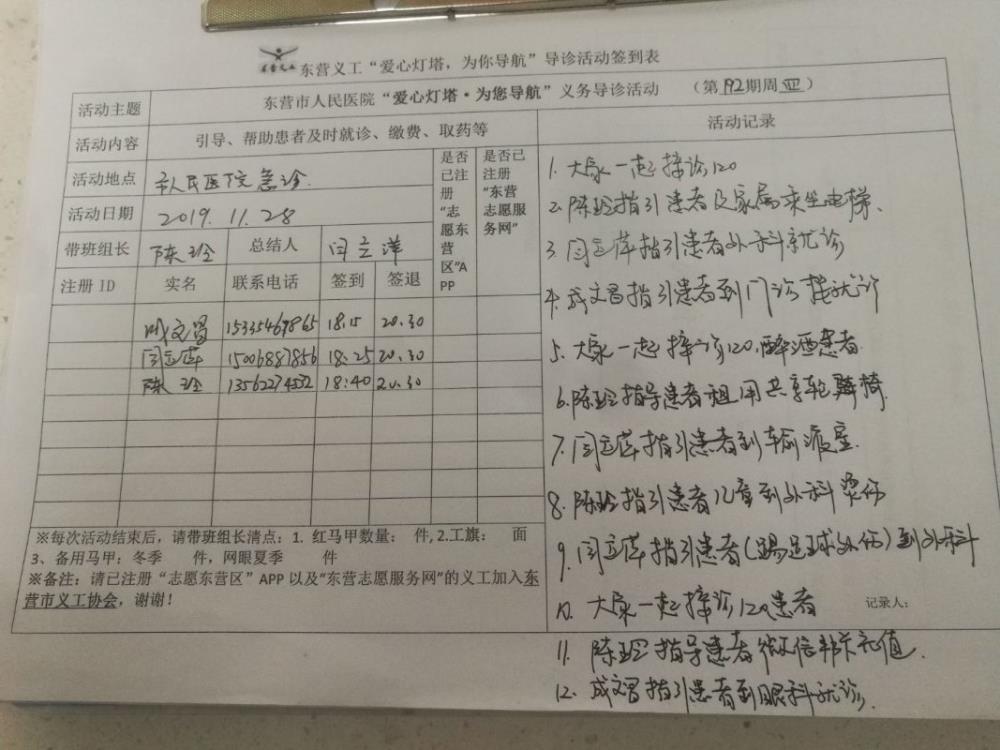 东营义工“爱心灯塔，为你导航”导诊活动签到表
活动主题 东营市人民医院“爱心灯塔·为您导航”义务导诊活动 （第192期周四）
活动内容 引导、帮助患者及时就诊、缴费、取药等
活动地点 市人民医院急诊.
活动日期 2019.11.28
带班组长 陈玲 总结人 闫立萍
是否已注册“志愿东营区”APP
是否已注册“东营志愿服务网”
注册 ID 实名 联系电话 签到 签退
成文昌 15335469865 18:15 20.30
闫立萍 15006887856 18:25 20.30
陈玲 18:40 20.30
※每次活动结束后，请带班组长清点：1. 红马甲数量： 件, 2.工旗： 面
3、备用马甲：冬季 件，网眼夏季 件
※备注：请已注册“志愿东营区”APP 以及“东营志愿服务网”的义工加入东
营市义工协会，谢谢！
活动记录
1. 大家一起接诊120
2. 陈玲指引患者及家属乘坐电梯.
3. 闫立萍指引患者外科就诊
4. 成文昌指引患者到门诊楼就诊
5. 大家一起接诊120,醉酒患者.
6. 陈玲指导患者租用共享轮椅.
7. 闫立萍指引患者到输液室.
8. 陈玲指引患者儿童到外科烫伤
9. 闫立萍指引患者(踢足球外伤)到外科
10. 大家一起接诊120患者
记录人：
11. 陈玲指导患者微信办卡充值.
12. 成文昌指引患者到眼科就诊.